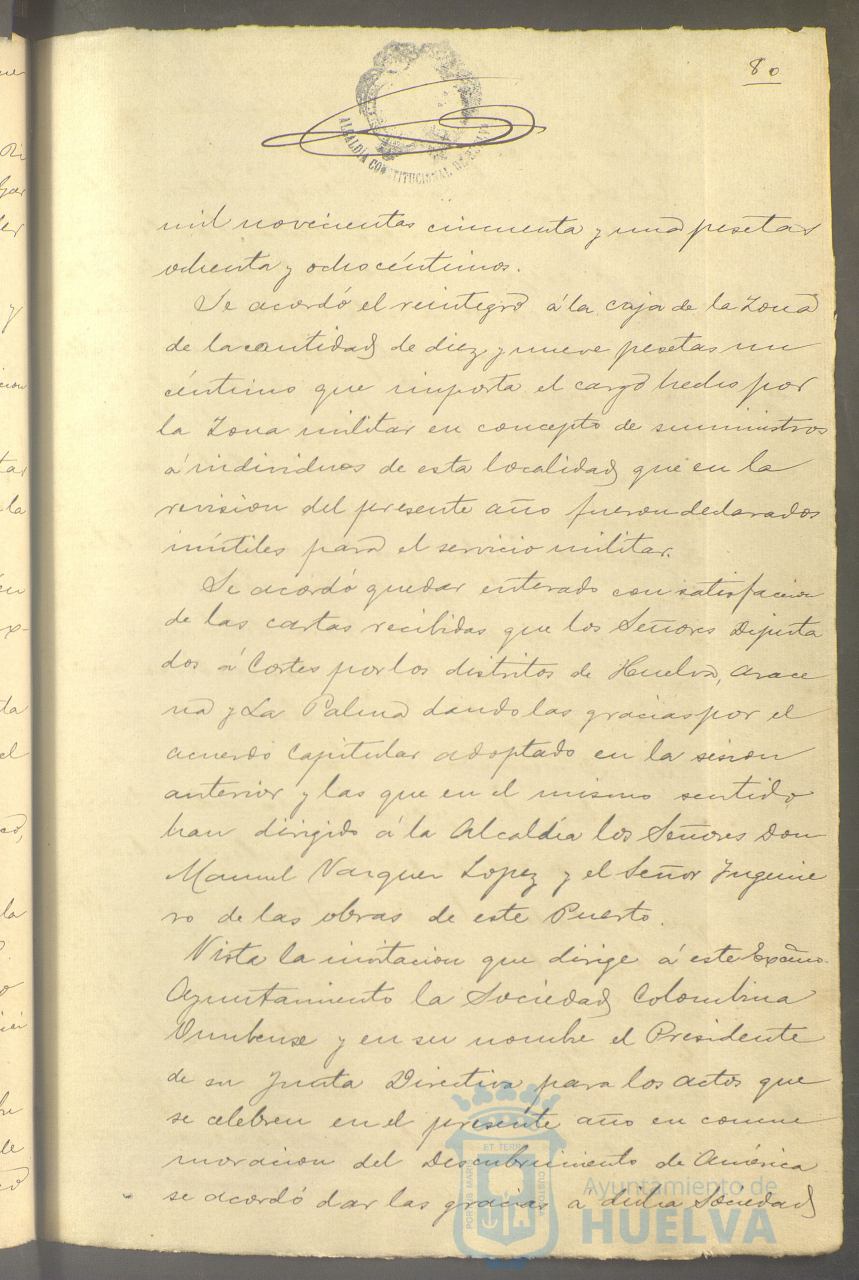 80
ALCALDÍA CONSTITUCIONAL DE HUELVA
mil novecientas cincuenta y una pesetas
ochenta y ocho céntimos.
Se acordó el reintegro á la caja de la Zona
de la cantidad de diez y nueve pesetas un
céntimo que importa el cargo hecho por
la Zona militar en concepto de suministros
á individuos de esta localidad que en la
revision del presente año fueron declarados
inútiles para el servicio militar.
Se acordó quedar enterado con satisfaccion
de las cartas recibidas que los Señores Diputa
dos á Cortes por los distritos de Huelva, Arace
na y La Palma dando las gracias por el
acuerdo Capitular adoptado en la sesion
anterior y las que en el mismo sentido
han dirigido á la Alcaldía los Señores Don
Manuel Vazquez Lopez y el Señor Ingenie
ro de las obras de este Puerto.
Vista la invitacion que dirige á este Excmo.
Ayuntamiento la Sociedad Colombina
Onubense y en su nombre el Presidente
de su Junta Directiva para los actos que
se celebren en el presente año en conme
moracion del Descubrimiento de América
se acordó dar las gracias á dicha Sociedad
PORTUS MARIS ET TERRAE CUSTODIA
Ayuntamiento de
HUELVA